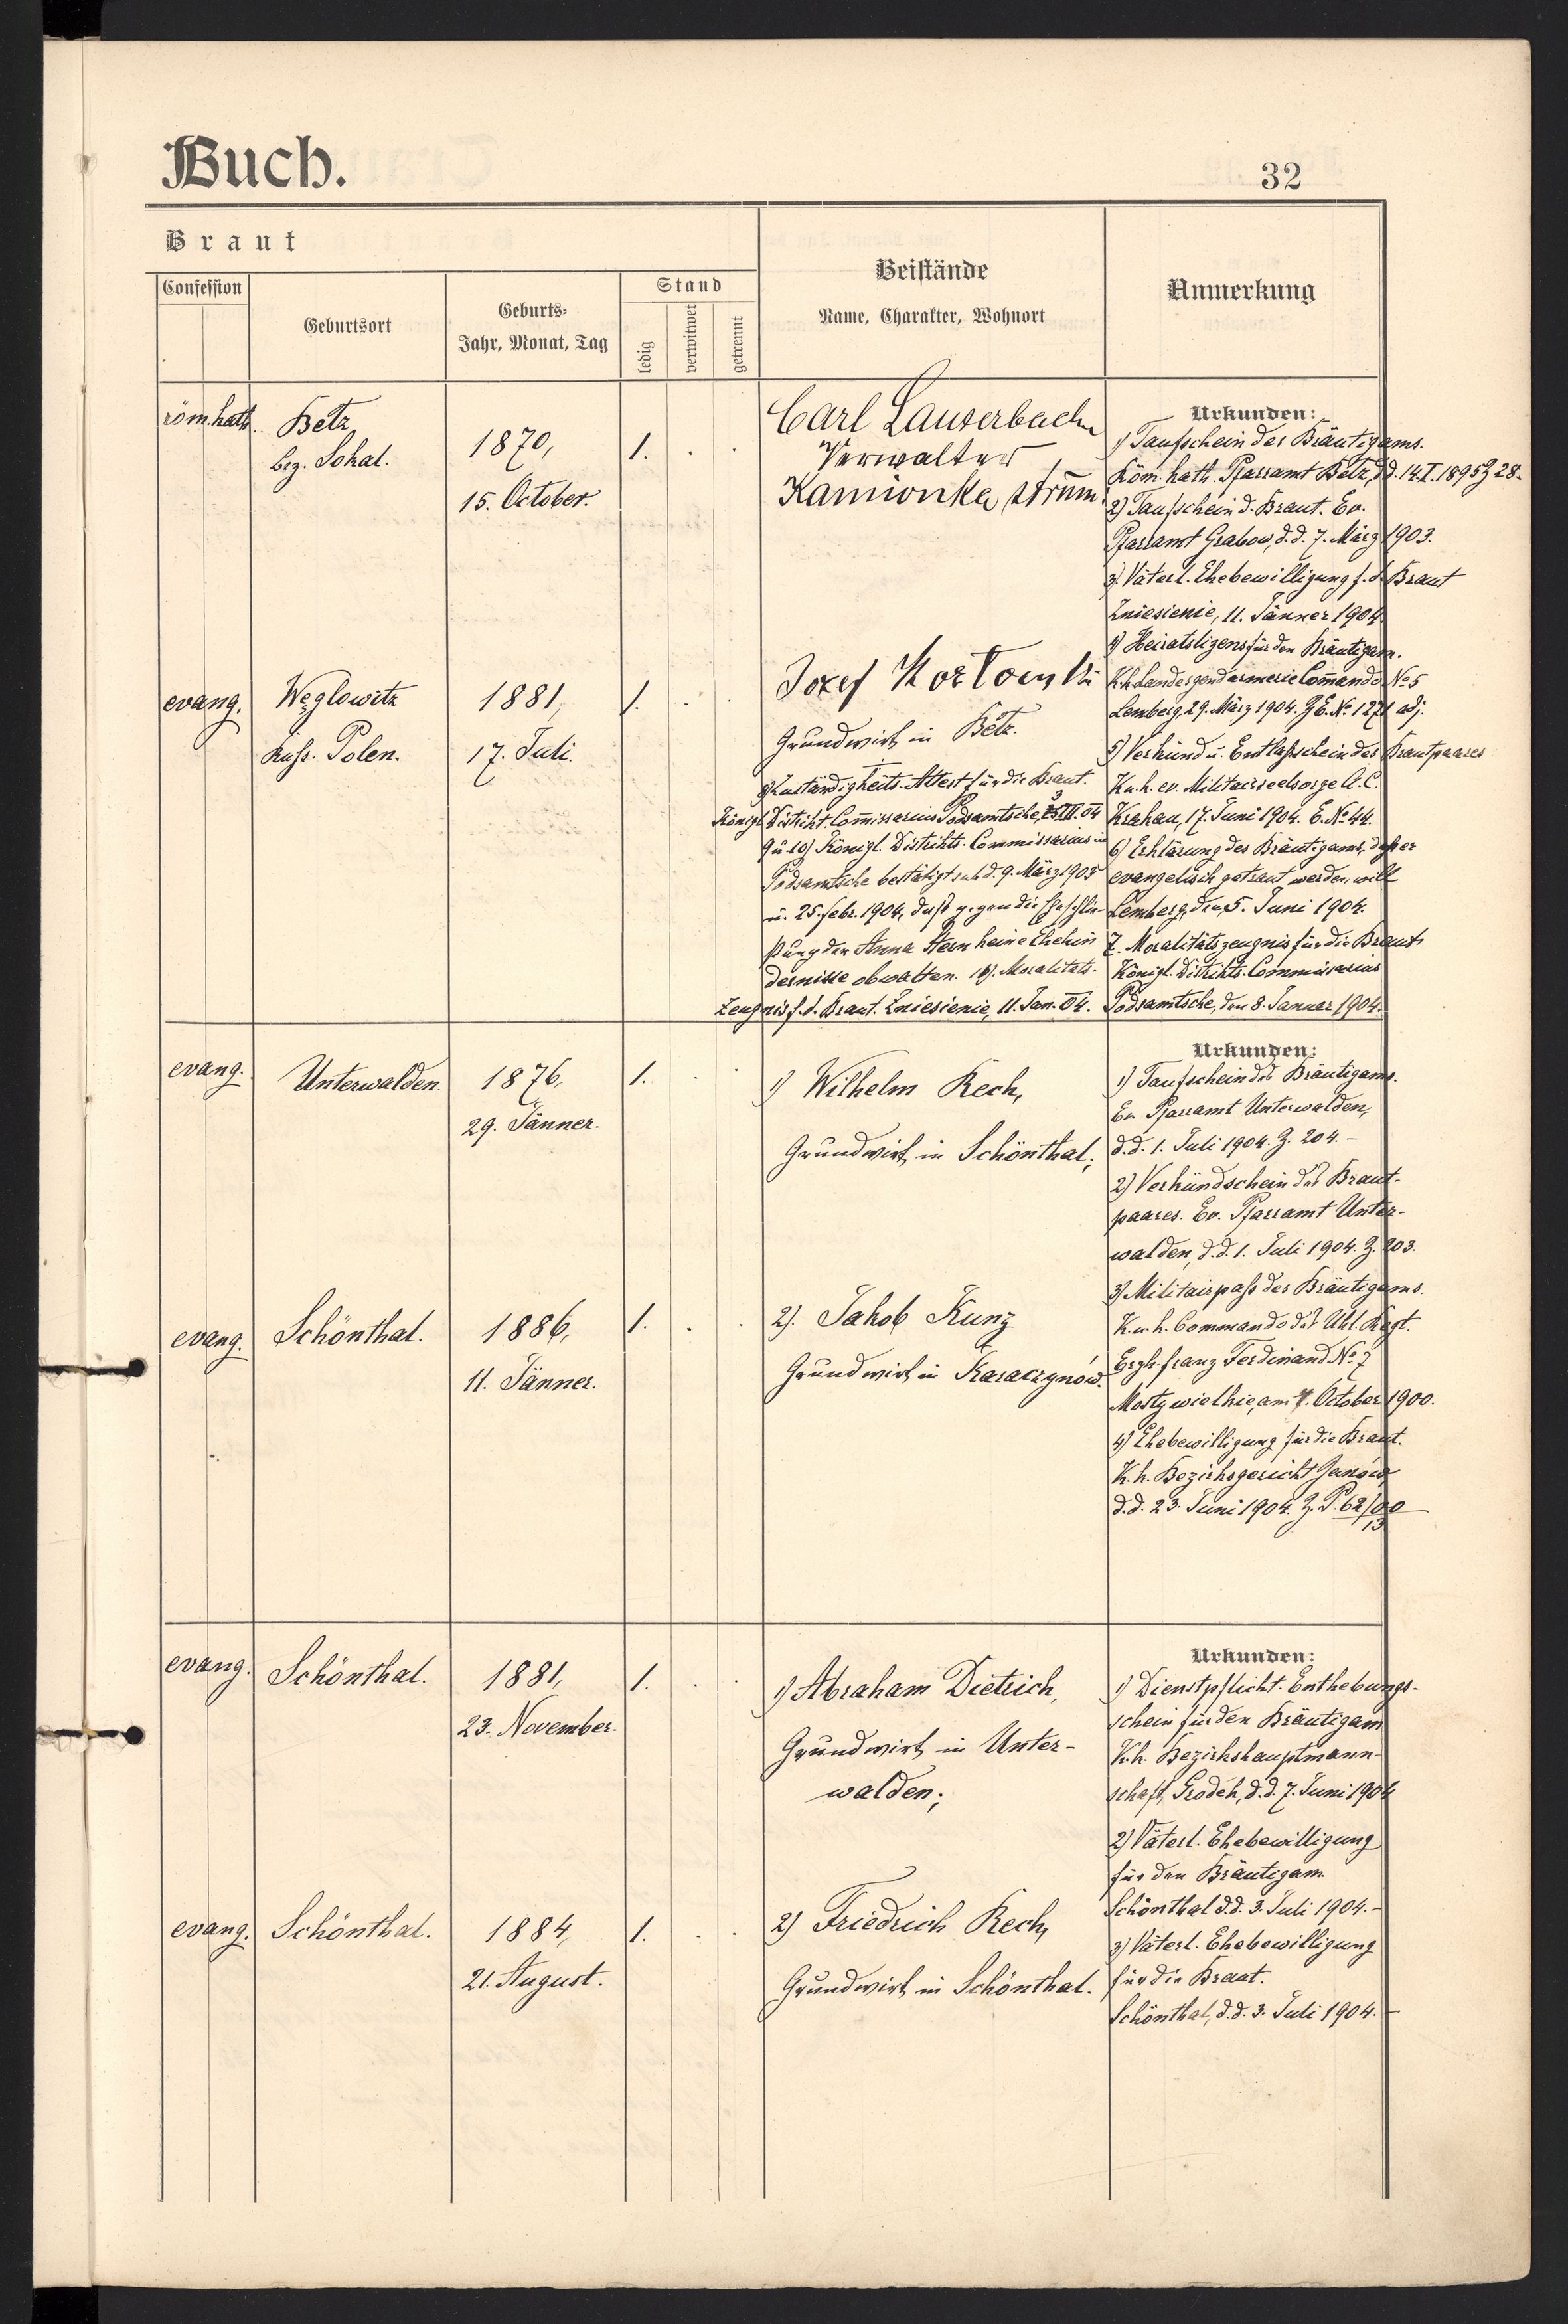 Buch.
32
Braut
Confession
Geburtsort
Geburts-
Jahr, Monat, Tag
Stand
ledig
verwitwet
getrennt
Beistände
Name, Charakter, Wohnort
Anmerkung
röm. kath.
Betz
bez. Sokal.
1870,
15. October.
1.
Carl Lauterbach
Verwalter
Kamionka strum.
Urkunden:
1) Taufschein des Bräutigams.
Röm. kath. Pfarramt Betz, d.d. 14.I.1895 Z 28.
2) Taufschein d. Braut. Ev.
Pfarramt Grabow, d.d. 7. März 1903.
3). Väterl. Ehebewilligung f. d. Braut
Zniesienie, 11. Jänner 1904.
4) Heiratslizens für den Bräutigam.
K.k. Landesgendarmerie Com̄ando No 5
Lemberg, 29. März 1904. Z E. No 1271 adj.
5) Verkünd u. Entlaßschein des Brautpaares
K.u.k. ev. Militairseelsorge A.C.
Krakau, 17. Juni 1904. E. No 44.
6) Erklärung des Bräutigams, daß er
evangelisch getraut werden will
Lemberg, den 5. Juni 1904.
7. Moralitätszeugnis für die Braut
Königl. Distrikts-Commissarius
Podsamtsche, den 8. Januar 1904.
evang.
Węglowitz
Russ. Polen.
1881,
17. Juli.
1.
Jozef
Grundwirt in Betz.
8) Zuständigheits-Attest für die Braut.
Königl. Distrikt. Com̄issarius Podsamtsche, III. 04
9 u 10) Königl. Distrikts-Commissarius in
Podsamtsche bestätigt sub d. 9. März 1903
u. 25. Febr. 1904, daß gegen die Eheschlie-
ßung der Anna Stern keine Ehehin
dernisse obwalten. Moralitäts-
Zeugnis f. d. Braut. Zniesienie, 11. Jan. 04.
evang.
Unterwalden.
1876,
29. Jänner.
1.
1) Wilhelm Rech,
Grundwirt in Schönthal;
Urkunden:
1) Taufschein des Bräutigams.
Ev. Pfarramt Unterwalden,
d.d. 1. Juli 1904. Z. 204.-
2) Verkündschein des Braut-
paares. Ev. Pfarramt Unter-
walden, d.d. 1. Juli 1904. Z. 203.
3) Militairpaß des Bräutigams.
K.u.k. Commando des Uhl. Regt.
Erzh. Franz Ferdinand No 7
Mosty wielkie, am October 1900.
4) Ehebewilligung für die Braut.
K.k. Bezirksgericht Janów
d.d. 23. Juni 1904. Z. P. 62/00
13
evang.
Schönthal.
1886,
11. Jänner.
1.
2). Jakob Kunz
Grundwirt in Karaczynów.
evang.
Schönthal.
1881,
23. November.
1.
1) Abraham Dietrich,
Grundwirt in Unter-
walden;
Urkunden:
1) Dienstpflicht-Enthebungs-
schein für den Bräutigam
K.k. Bezirkshauptmann-
schaft, Grodek, d.d. 7. Juni 1904
2) Väterl. Ehebewilligung
für den Bräutigam.
Schönthal d.d. 3. Juli 1904.-
3) Väterl. Ehebewilligung
für die Braut.
Schönthal, d.d. 3. Juli 1904.-
evang.
Schönthal.
1884,
21. August.
1.
2) Friedrich Rech,
Grundwirt in Schönthal.